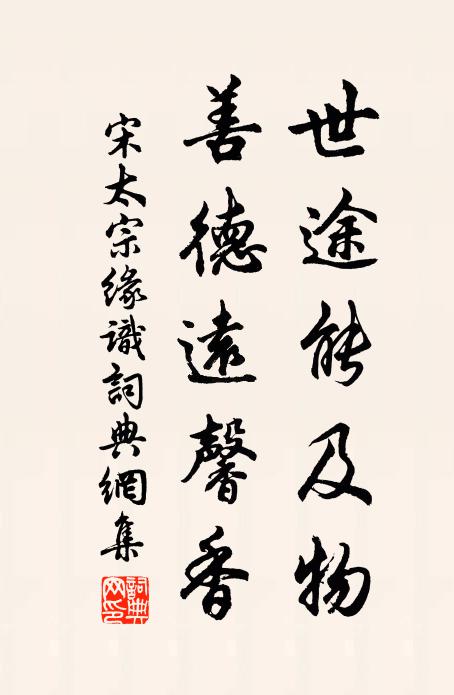 世途能及物
善德遠馨香
宋太宗緣識詞典網集
詞典網印